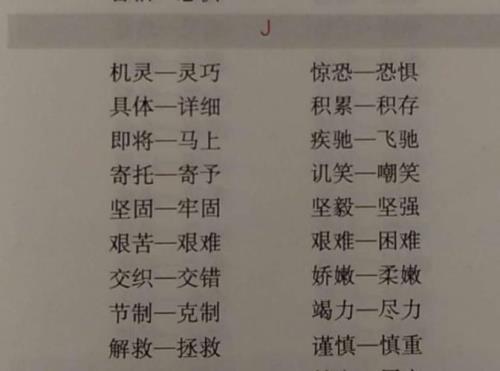 J
机灵—灵巧 惊恐—恐惧
具体—详细 积累—积存
即将—马上 疾驰—飞驰
寄托—寄予 讥笑—嘲笑
坚固—牢固 坚毅—坚强
艰苦—艰难 艰难—困难
交织—交错 娇嫩—柔嫩
节制—克制 竭力—尽力
解救—拯救 谨慎—慎重